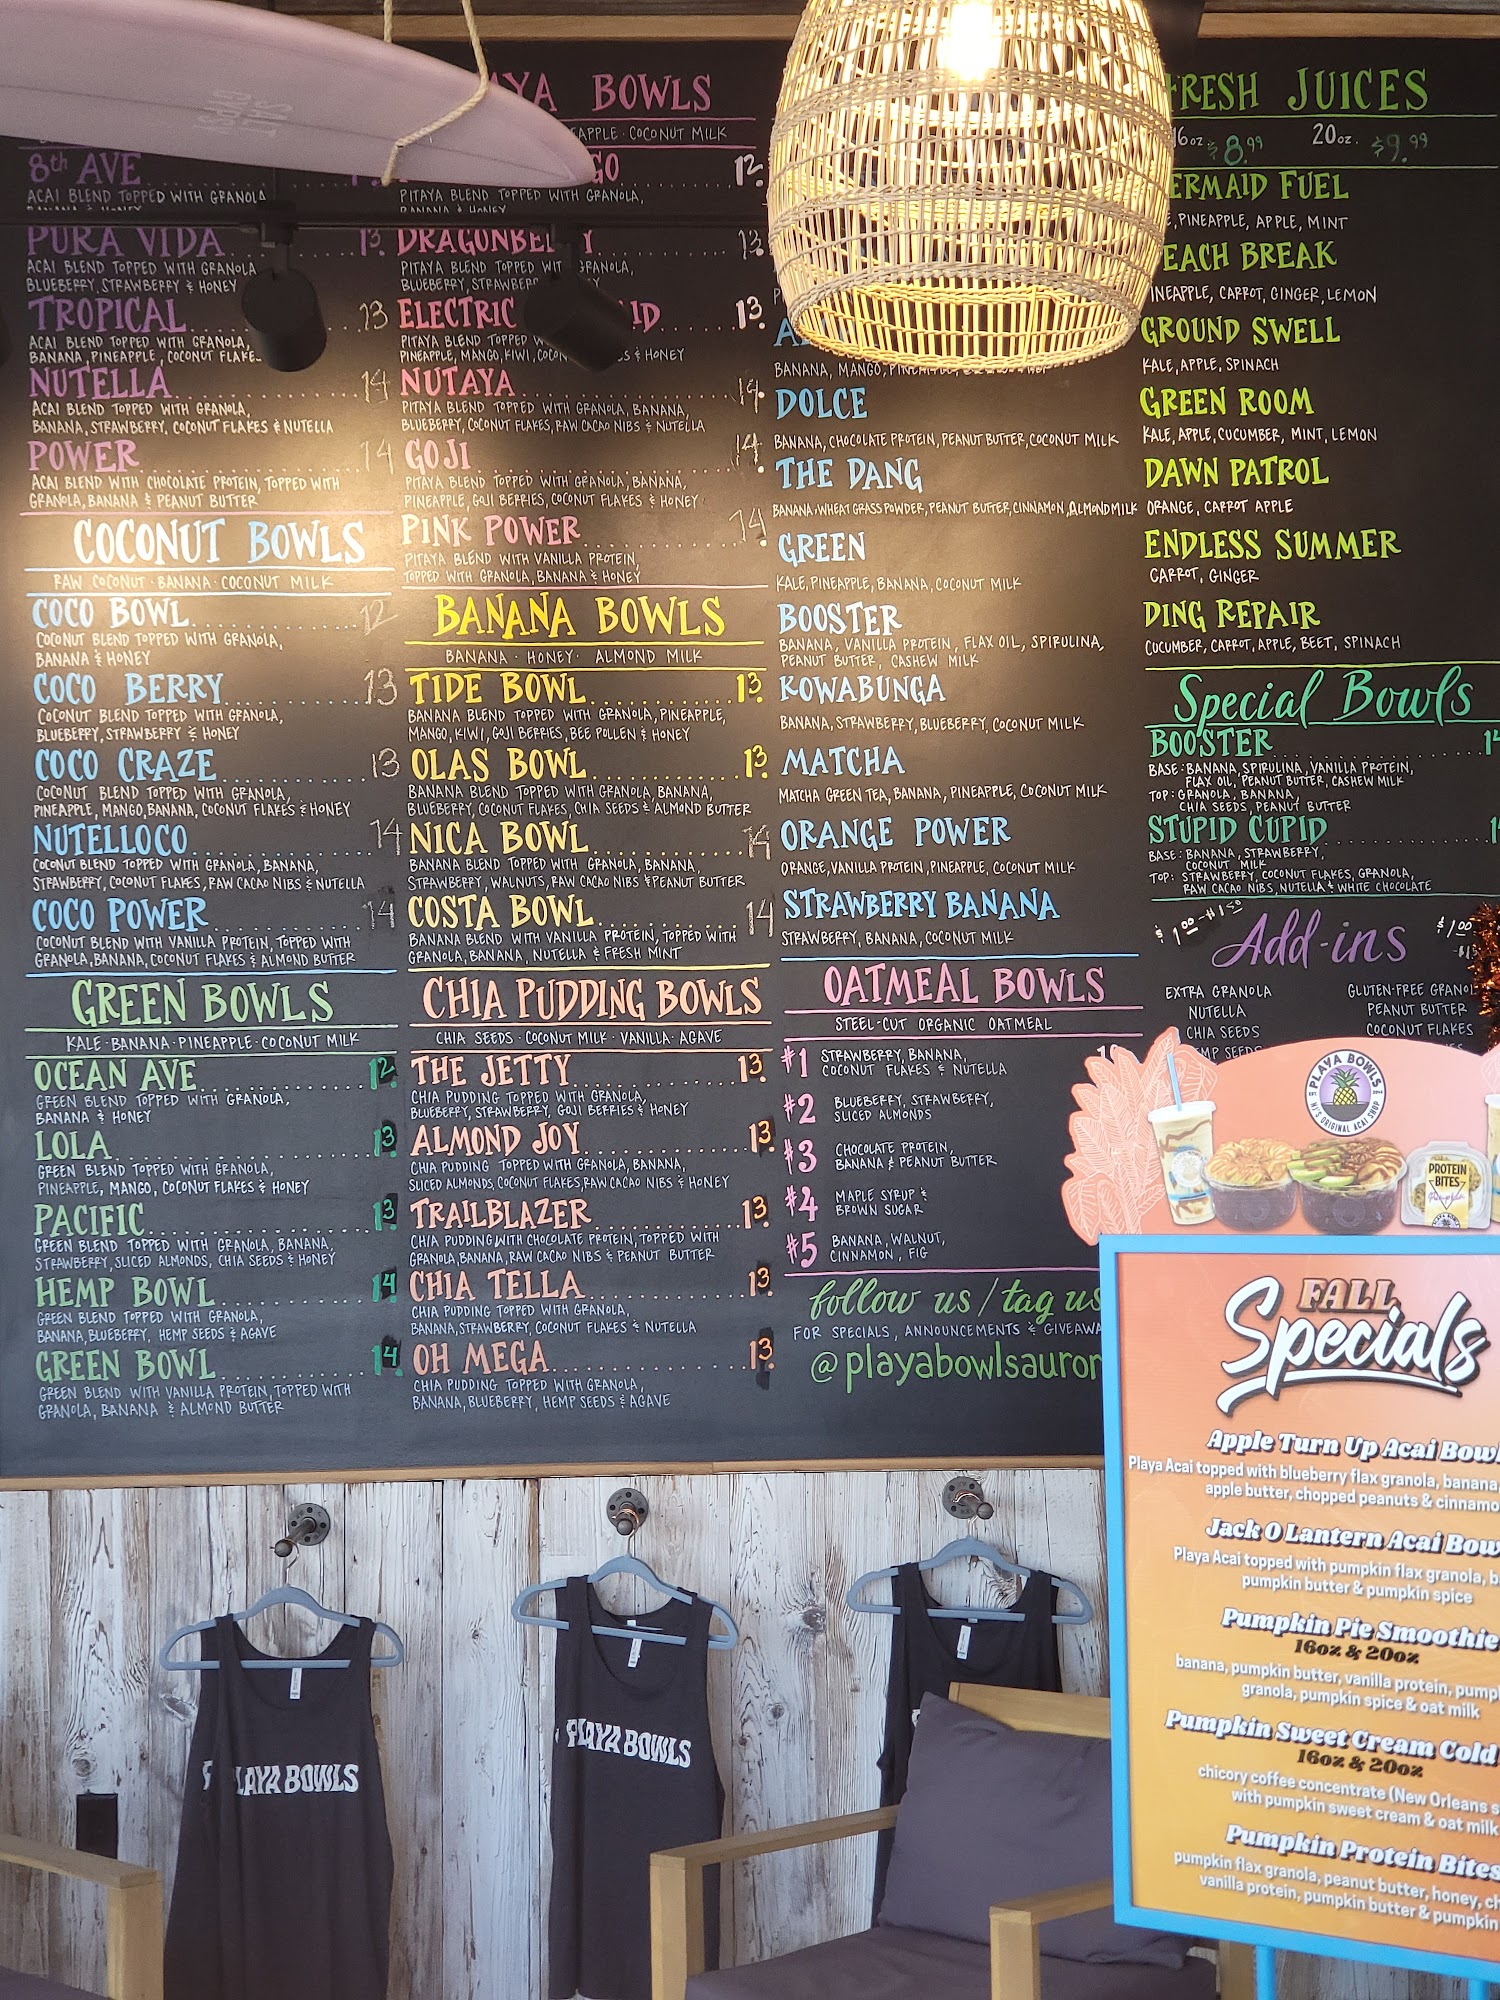 SALT
GYPSY
8th AVE
ACAI BLEND TOPPED WITH GRANOLA
BANANA & HONEY
PURA VIDA 13.
ACAI BLEND TOPPED WITH GRANOLA
BLUEBERRY, STRAWBERRY & HONEY
TROPICAL 13
ACAI BLEND TOPPED WITH GRANOLA,
BANANA, PINEAPPLE, COCONUT FLAKE
NUTELLA 14
ACAI BLEND TOPPED WITH GRANOLA,
BANANA, STRAWBERRY, COCONUT FLAKES & NUTELLA
POWER 14
ACAI BLEND WITH CHOCOLATE PROTEIN, TOPPED WITH
GRANOLA, BANANA & PEANUT BUTTER
COCONUT BOWLS
RAW COCONUT · BANANA · COCONUT MILK
COCO BOWL 12
COCONUT BLEND TOPPED WITH GRANOLA,
BANANA & HONEY
COCO BERRY 13
COCONUT BLEND TOPPED WITH GRANOLA,
BLUEBERRY, STRAWBERRY & HONEY
COCO CRAZE 13
COCONUT BLEND TOPPED WITH GRANOLA,
PINEAPPLE, MANGO, BANANA, COCONUT FLAKES & HONEY
NUTELLOCO 14
COCONUT BLEND TOPPED WITH GRANOLA, BANANA,
STRAWBERRY, COCONUT FLAKES, RAW CACAO NIBS & NUTELLA
COCO POWER 14
COCONUT BLEND WITH VANILLA PROTEIN, TOPPED WITH
GRANOLA, BANANA, COCONUT FLAKES & ALMOND BUTTER
GREEN BOWLS
KALE · BANANA · PINEAPPLE · COCONUT MILK
OCEAN AVE 12.
GREEN BLEND TOPPED WITH GRANOLA,
BANANA & HONEY
LOLA 13.
GREEN BLEND TOPPED WITH GRANOLA,
PINEAPPLE, MANGO, COCONUT FLAKES & HONEY
PACIFIC 13.
GREEN BLEND TOPPED WITH GRANOLA, BANANA,
STRAWBERRY, SLICED ALMONDS, CHIA SEEDS & HONEY
HEMP BOWL 14.
GREEN BLEND TOPPED WITH GRANOLA,
BANANA, BLUEBERRY, HEMP SEEDS & AGAVE
GREEN BOWL 14.
GREEN BLEND WITH VANILLA PROTEIN, TOPPED WITH
GRANOLA, BANANA & ALMOND BUTTER
BOWLS
COCONUT MILK
12.
PITAYA BLEND TOPPED WITH GRANOLA,
BANANA & HONEY
DRAGONBERRY 13.
PITAYA BLEND TOPPED WITH GRANOLA,
BLUEBERRY, STRAWBERRY
ELECTRIC 13.
PITAYA BLEND TOPPED WITH
PINEAPPLE, MANGO, KIWI, & HONEY
NUTAYA 14.
PITAYA BLEND TOPPED WITH GRANOLA, BANANA,
BLUEBERRY, COCONUT FLAKES, RAW CACAO NIBS & NUTELLA
GOJI 14.
PITAYA BLEND TOPPED WITH GRANOLA, BANANA,
PINEAPPLE, GOJI BERRIES, COCONUT FLAKES & HONEY
PINK POWER 14.
PITAYA BLEND WITH VANILLA PROTEIN,
TOPPED WITH GRANOLA, BANANA & HONEY
BANANA BOWLS
BANANA · HONEY · ALMOND MILK
TIDE BOWL 13.
BANANA BLEND TOPPED WITH GRANOLA, PINEAPPLE,
MANGO, KIWI, GOJI BERRIES, BEE POLLEN & HONEY
OLAS BOWL 13.
BANANA BLEND TOPPED WITH GRANOLA, BANANA,
BLUEBERRY, COCONUT FLAKES, CHIA SEEDS & ALMOND BUTTER
NICA BOWL 14
BANANA BLEND TOPPED WITH GRANOLA, BANANA,
STRAWBERRY, WALNUTS, RAW CACAO NIBS & PEANUT BUTTER
COSTA BOWL 14
BANANA BLEND WITH VANILLA PROTEIN, TOPPED WITH
GRANOLA, BANANA, NUTELLA & FRESH MINT
CHIA PUDDING BOWLS
CHIA SEEDS · COCONUT MILK · VANILLA · AGAVE
THE JETTY 13.
CHIA PUDDING TOPPED WITH GRANOLA,
BLUEBERRY, STRAWBERRY, GOJI BERRIES & HONEY
ALMOND JOY 13.
CHIA PUDDING TOPPED WITH GRANOLA, BANANA,
SLICED ALMONDS, COCONUT FLAKES, RAW CACAO NIBS & HONEY
TRAILBLAZER 13.
CHIA PUDDING WITH CHOCOLATE PROTEIN, TOPPED WITH
GRANOLA, BANANA, RAW CACAO NIBS & PEANUT BUTTER
CHIA TELLA 13.
CHIA PUDDING TOPPED WITH GRANOLA,
BANANA, STRAWBERRY, COCONUT FLAKES & NUTELLA
OH MEGA 13.
CHIA PUDDING TOPPED WITH GRANOLA,
BANANA, BLUEBERRY, HEMP SEEDS & AGAVE
BANANA, MANGO,
DOLCE
BANANA, CHOCOLATE PROTEIN, PEANUT BUTTER, COCONUT MILK
THE DANG
BANANA, WHEAT GRASS POWDER, PEANUT BUTTER, CINNAMON, ALMOND MILK
GREEN
KALE, PINEAPPLE, BANANA, COCONUT MILK
BOOSTER
BANANA, VANILLA PROTEIN, FLAX OIL, SPIRULINA,
PEANUT BUTTER, CASHEW MILK
KOWABUNGA
BANANA, STRAWBERRY, BLUEBERRY, COCONUT MILK
MATCHA
MATCHA GREEN TEA, BANANA, PINEAPPLE, COCONUT MILK
ORANGE POWER
ORANGE, VANILLA PROTEIN, PINEAPPLE, COCONUT MILK
STRAWBERRY BANANA
STRAWBERRY, BANANA, COCONUT MILK
OATMEAL BOWLS
STEEL-CUT ORGANIC OATMEAL
#1 STRAWBERRY, BANANA,
COCONUT FLAKES & NUTELLA
#2 BLUEBERRY, STRAWBERRY,
SLICED ALMONDS
#3 CHOCOLATE PROTEIN,
BANANA & PEANUT BUTTER
#4 MAPLE SYRUP &
BROWN SUGAR
#5 BANANA, WALNUT,
CINNAMON, FIG
follow us / tag us
FOR SPECIALS, ANNOUNCEMENTS & GIVEAWA
@playabowlsauror
FRESH JUICES
16oz. $8.99 20oz. $9.99
ERMAID FUEL
PINEAPPLE, APPLE, MINT
EACH BREAK
INEAPPLE, CARROT, GINGER, LEMON
GROUND SWELL
KALE, APPLE, SPINACH
GREEN ROOM
KALE, APPLE, CUCUMBER, MINT, LEMON
DAWN PATROL
ORANGE, CARROT APPLE
ENDLESS SUMMER
CARROT, GINGER
DING REPAIR
CUCUMBER, CARROT, APPLE, BEET, SPINACH
Special Bowls
BOOSTER
BASE: BANANA, SPIRULINA, VANILLA PROTEIN,
FLAX OIL, PEANUT BUTTER, CASHEW MILK
TOP: GRANOLA, BANANA,
CHIA SEEDS, PEANUT BUTTER
STUPID CUPID
BASE: BANANA, STRAWBERRY,
COCONUT MILK
TOP: STRAWBERRY, COCONUT FLAKES, GRANOLA,
RAW CACAO NIBS, NUTELLA & WHITE CHOCOLATE
Add-ins
EXTRA GRANOLA
NUTELLA
CHIA SEEDS
GLUTEN-FREE GRANOL
PEANUT BUTTER
COCONUT FLAKES
PLAYA BOWLS
NJ'S ORIGINAL ACAI SHOP
PROTEIN
BITES
Pumpkin
FALL
Specials
Apple Turn Up Acai Bowl
Playa Acai topped with blueberry flax granola, banana
apple butter, chopped peanuts & cinnamo
Jack O Lantern Acai Bow
Playa Acai topped with pumpkin flax granola, b
pumpkin butter & pumpkin spice
Pumpkin Pie Smoothie
16oz & 20oz
banana, pumpkin butter, vanilla protein, pump
granola, pumpkin spice & oat milk
Pumpkin Sweet Cream Cold
16oz & 20oz
chicory coffee concentrate (New Orleans s
with pumpkin sweet cream & oat milk
Pumpkin Protein Bites
pumpkin flax granola, peanut butter, honey, ch
vanilla protein, pumpkin butter & pumpkin
PLAYA BOWLS
PLAYA BOWLS